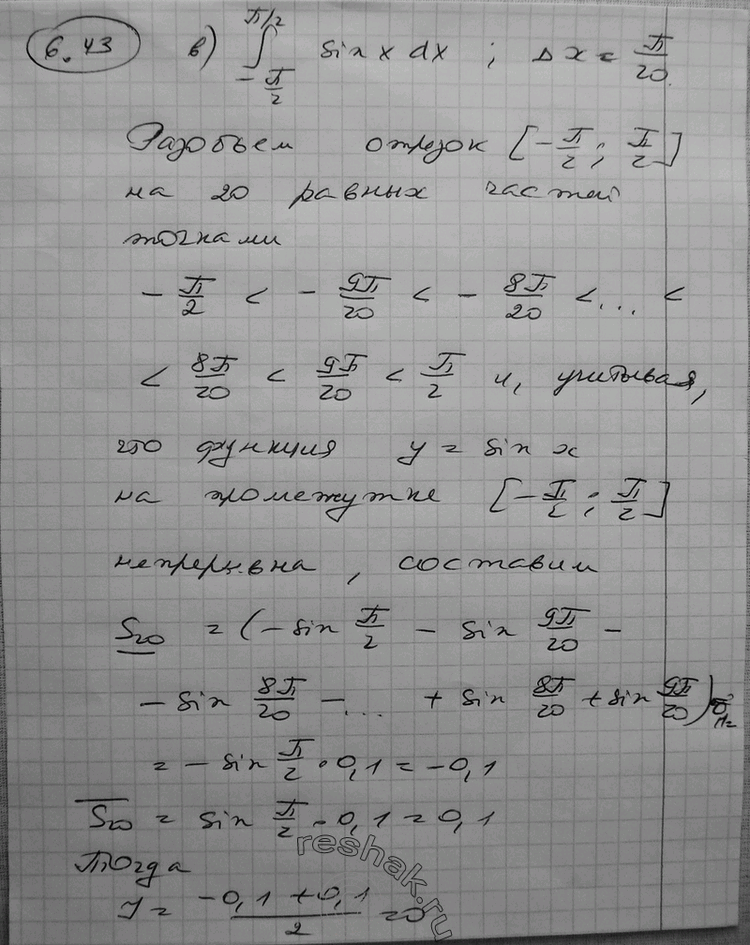 6.43 в) ∫_{-π/2}^{π/2} sin x dx ; Δx = π/20.
Разобьем отрезок [-π/2 ; π/2]
на 20 равных частей
точками
-π/2 < -9π/20 < -8π/20 <... <
< 8π/20 < 9π/20 < π/2 и, учитывая,
что функция y = sin x
на промежутке [-π/2 ; π/2]
непрерывна, составим
S20 = (-sin π/2 - sin 9π/20 -
- sin 8π/20 -... + sin 8π/20 + sin 9π/20)
= - sin π/2 · 0,1 = -0,1
S20 = sin π/2 · 0,1 = 0,1
Тогда
J = (-0,1 + 0,1)/2 = 0
reshak.ru